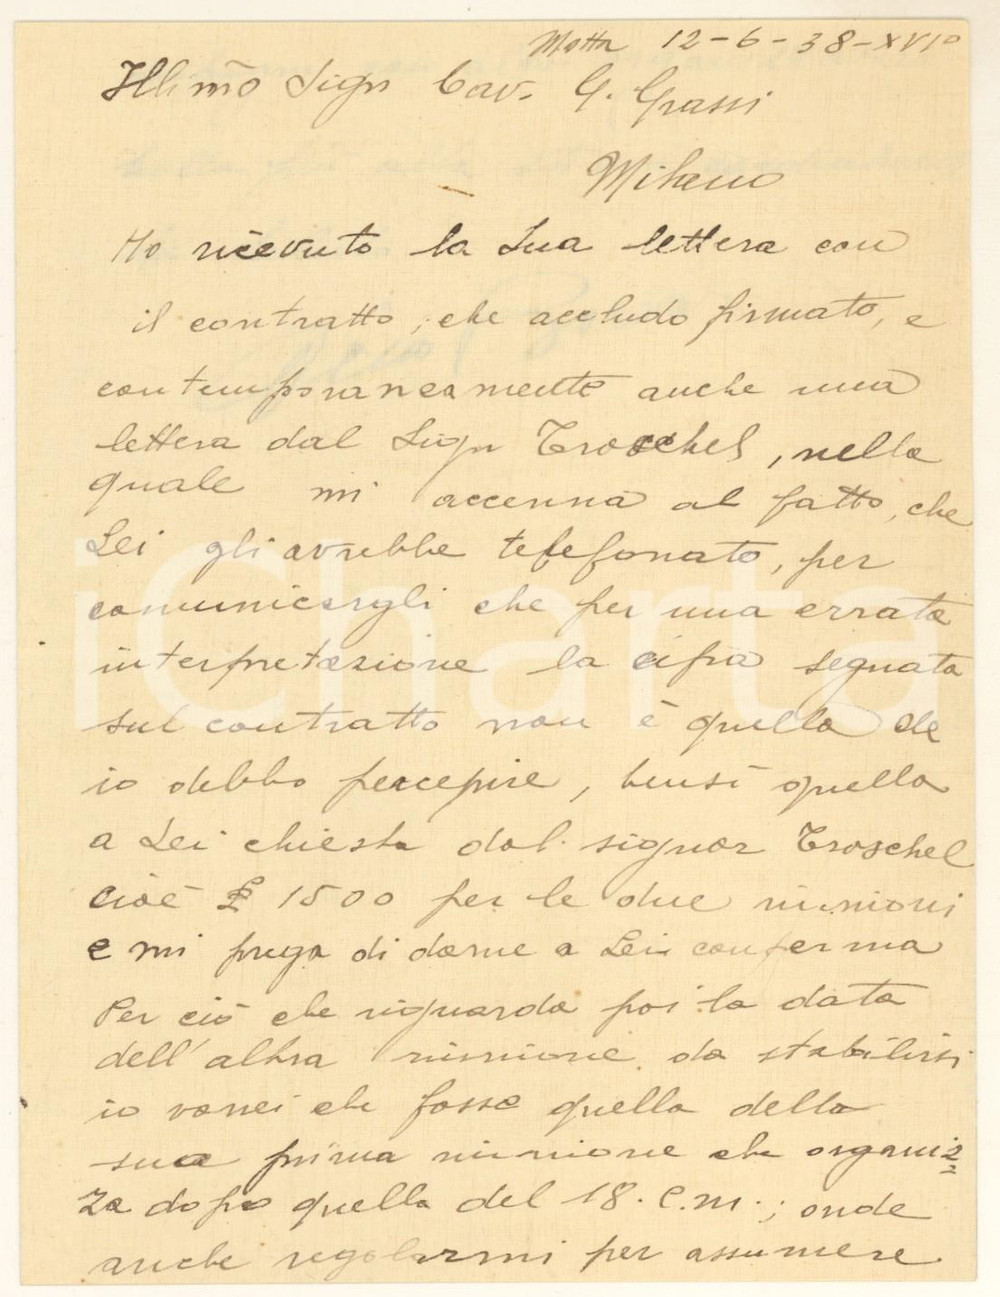 Motta 12-6-38-XVIº
Illmo Sign Cav. G. Grassi
Milano
Ho ricevuto la Sua lettera con
il contratto, che accludo firmato, e
contemporaneamente anche una
lettera dal Sign Troschel, nella
quale mi accenna al fatto, che
Lei gli avrebbe telefonato, per
comunicargli che per una errata
interpretazione la cifra segnata
sul contratto non è quella che
io debbo percepire, bensì quella
a Lei chiesta dal signor Troschel
cioè £ 1500 per le due riunioni
e mi prega di darne a Lei conferma
Per ciò che riguarda poi la data
dell'altra riunione da stabilirsi
io vorrei che fosse quella della
sua prima riunione che organiz=
za dopo quella del 18. c.m.; onde
anche regolarmi per assumere
iCharta